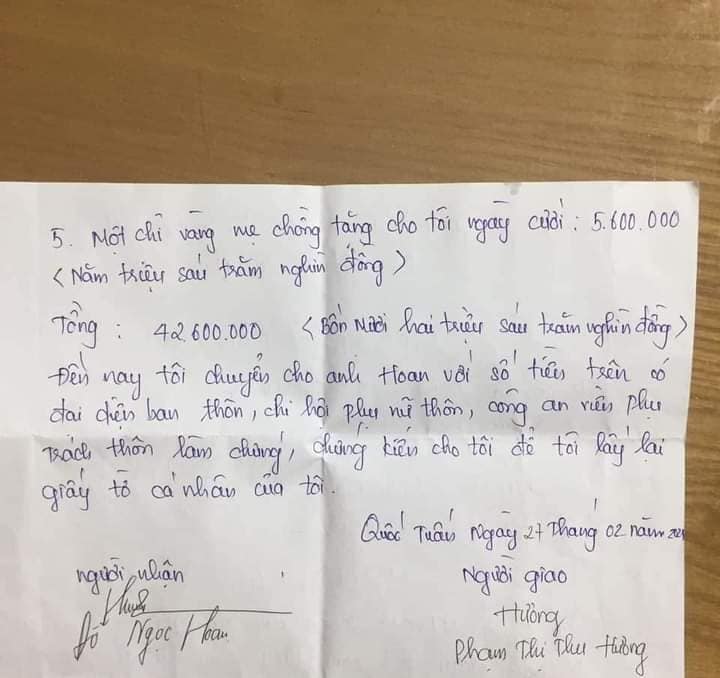 5. Một chỉ vàng mẹ chồng tặng cho tôi ngày cưới : 5.600.000
< Năm triệu sáu trăm nghìn đồng >
Tổng : 42.600.000 < Bốn mươi hai triệu sáu trăm nghìn đồng >
Đến nay tôi chuyển cho anh Hoan với số tiền trên có
đại diện ban thôn, chi hội phụ nữ thôn, công an viên phụ
trách thôn làm chứng, chứng kiến cho tôi để tôi lấy lại
giấy tờ cá nhân của tôi.
Quốc Tuấn Ngày 27 Tháng 02 năm
người nhận
Người giao
Đỗ Ngọc Hoan
Hường
Phạm Thị Thu Hường